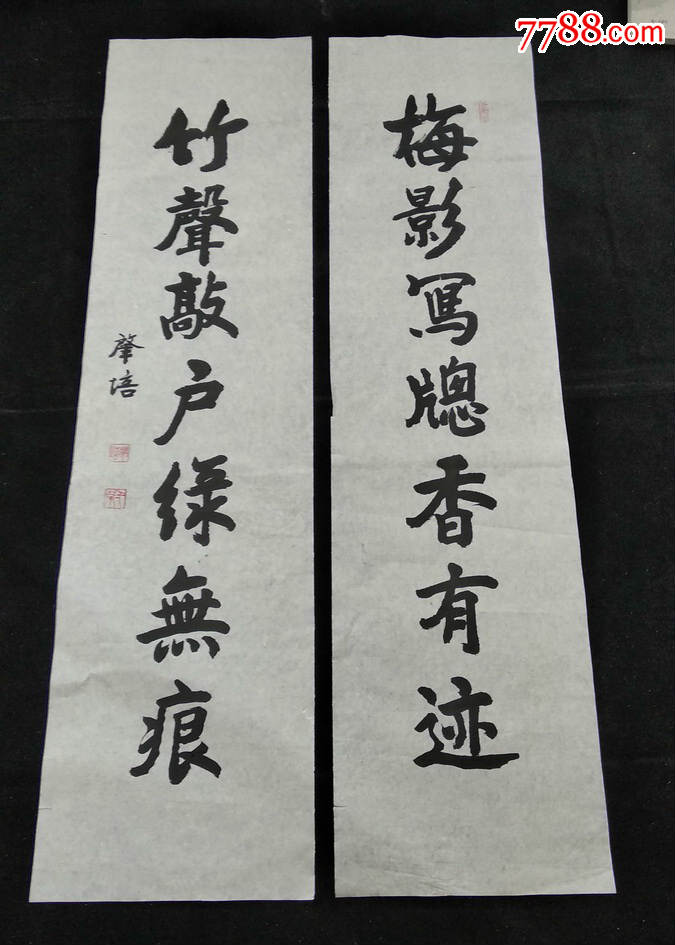 7788.com
梅影寫牕香有迹
竹聲敲户緑無痕
肇培